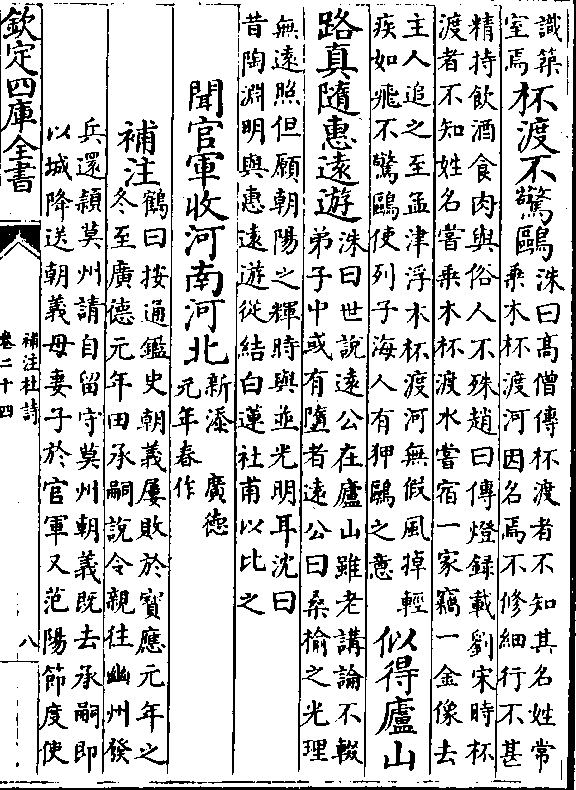 識築
室焉
杯渡不驚鷗
洙曰高僧傳杯渡者不知其名姓常
乘木杯渡河因名焉不修細行不甚
精持飲酒食肉與俗人不殊趙曰傳燈録載劉宋時杯
渡者不知姓名嘗乘木杯渡水嘗宿一家竊一金像去
主人追之至孟津浮木杯渡河無假風掉輕
疾如飛不驚鷗使列子海人有狎鷗之意
似得廬山
路真隨惠遠遊
洙曰世說遠公在廬山雖老講論不輟
弟子中或有墮者遠公曰桑榆之光理
無遠照但願朝陽之輝時與並光明耳沈曰
昔陶淵明與惠遠遊從結白蓮社甫以比之
聞官軍收河南河北
新添 廣德
元年春作
補注
鶴曰按通鑑史朝義屢敗於寳應元年之
冬至廣德元年田承嗣說令親往幽州發
兵還頴莫州請自留守莫州朝義既去承嗣即
以城降送朝義母妻子於官軍又范陽節度使
欽定四庫全書
補注杜詩
卷二十四
八